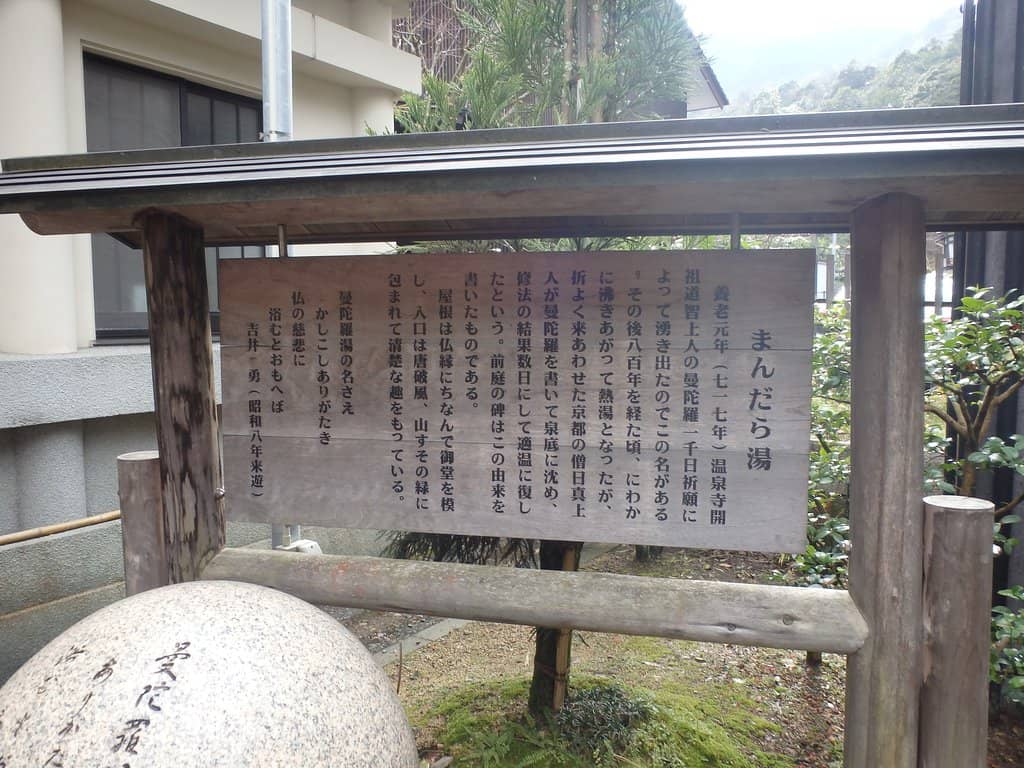 まんだら湯
養老元年（七一七年）温泉寺開
祖道智上人の曼陀羅一千日祈願に
よって湧き出たのでこの名がある
。その後八百年を経た頃、にわか
に沸きあがって熱湯となったが、
折よく来あわせた京都の僧日真上
人が曼陀羅を書いて泉底に沈め、
修法の結果数日にして適温に復し
たという。前庭の碑はこの由来を
書いたものである。
屋根は仏縁にちなんで御堂を模
し、入口は唐破風、山すその緑に
包まれて清楚な趣をもっている。
曼陀羅湯の名さえ
かしこしありがたき
仏の慈悲に
浴むとおもへば
吉井 勇（昭和八年来遊）
曼陀羅